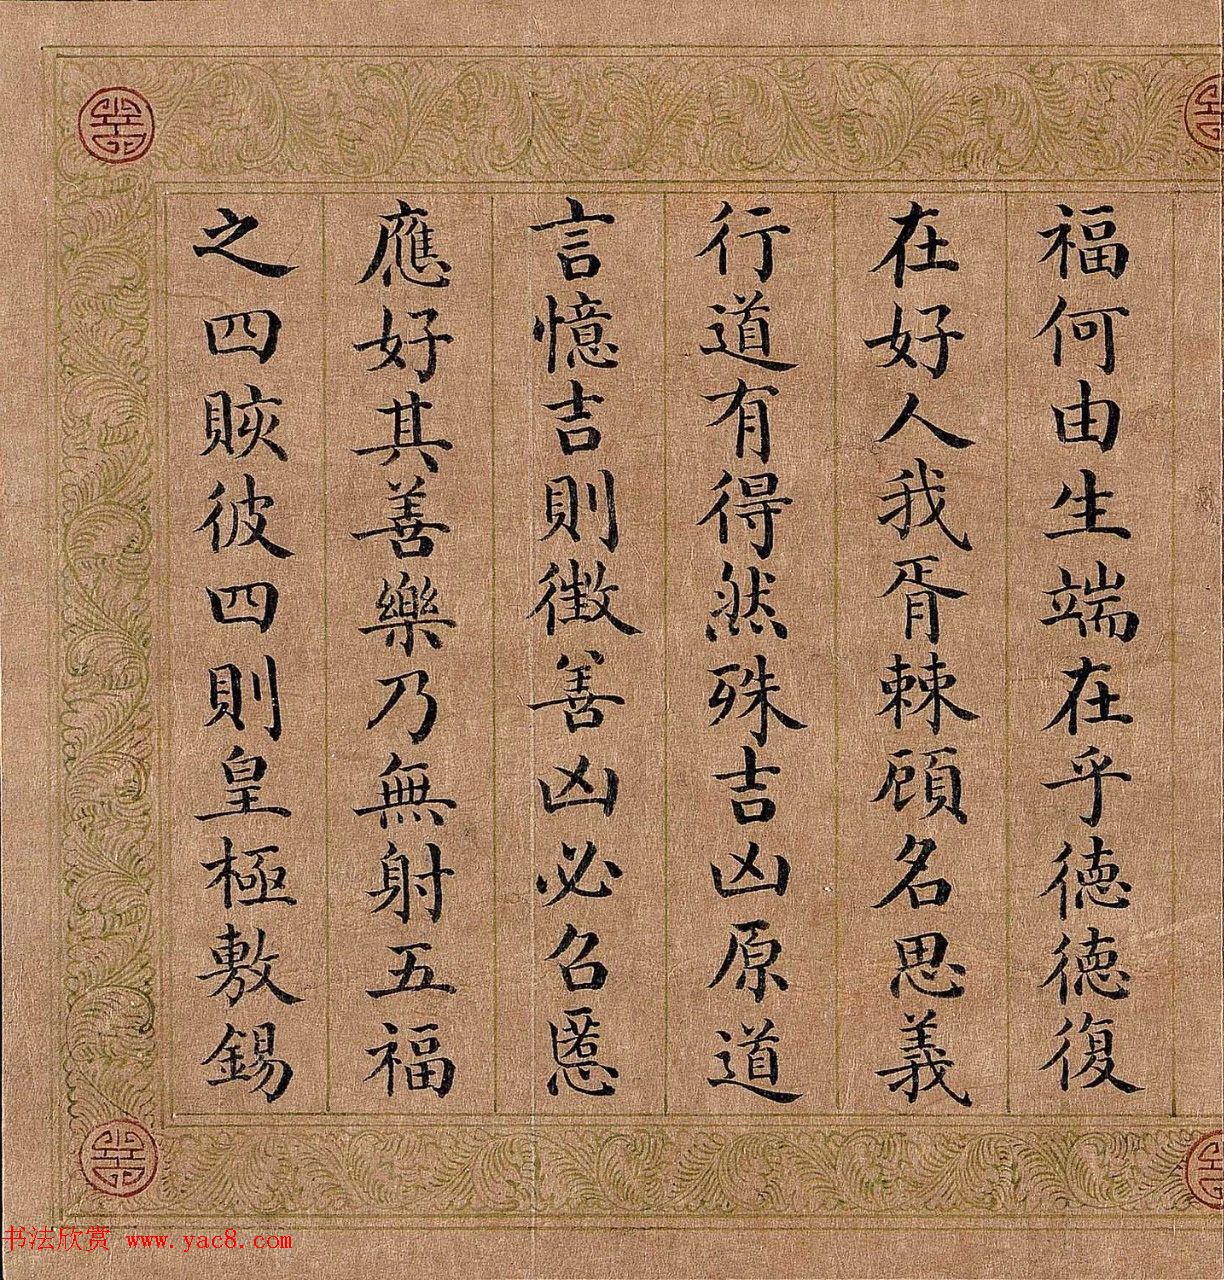 福何由生端在乎徳徳復
在好人我胥棘頋名思義
行道有得然殊吉凶原道
言憶吉則徴善凶必召慝
應好其善樂乃無射五福
之四賅彼四則皇極敷錫
书法欣赏 www.yac8.com